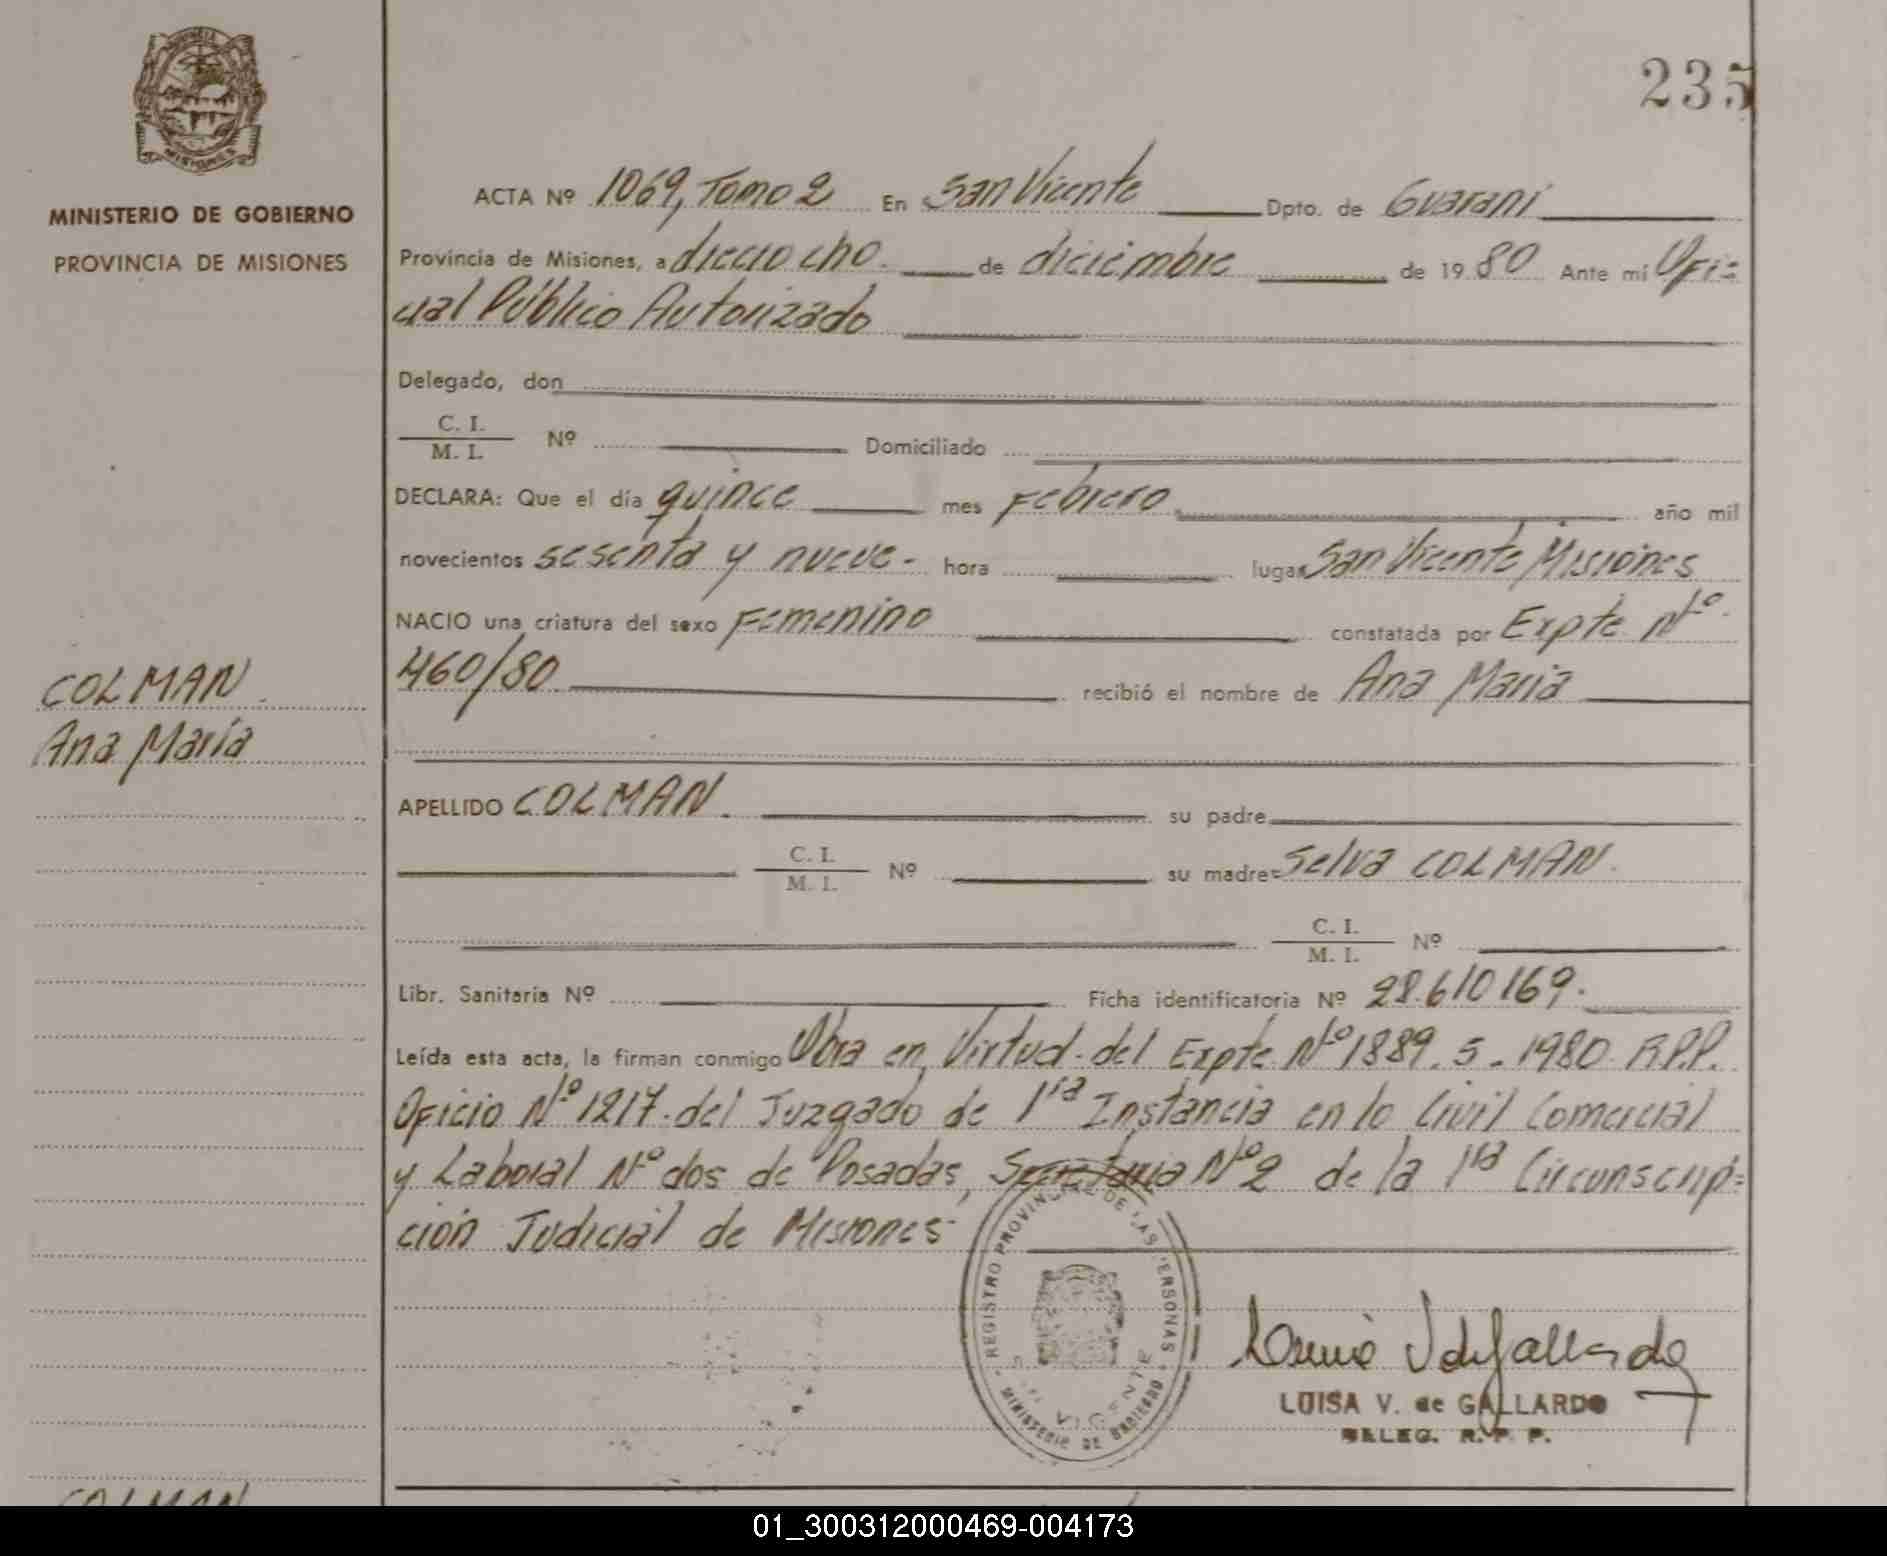 235
PROVINCIA
MISIONES
MINISTERIO DE GOBIERNO
PROVINCIA DE MISIONES
ACTA Nº 1069, Tomo 2 En San Vicente Dpto. de Guaraní
Provincia de Misiones, a dieciocho de diciembre de 1980 Ante mí Ofi=
cial Público Autorizado
Delegado, don
C. I.
M. I. Nº Domiciliado
DECLARA: Que el día quince mes Febrero año mil
novecientos sesenta y nueve - hora lugar San Vicente Misiones
NACIO una criatura del sexo Femenino constatada por Expte Nº
460/80 recibió el nombre de Ana María
COLMAN
Ana María
APELLIDO COLMAN su padre
C. I.
M. I. Nº su madre Selva COLMAN
C. I.
M. I. Nº
Libr. Sanitaria Nº Ficha identificatoria Nº 28.610169.
Leída esta acta, la firman conmigo Obra en Virtud del Expte Nº 1889.5.1980 R.P.P.
Oficio Nº 1217 del Juzgado de 1ra Instancia en lo Civil Comercial
y Laboral Nº dos de Posadas, Secretaria Nº 2 de la 1ra Circunscrip=
ción Judicial de Misiones
REGISTRO PROVINCIAL DE LAS PERSONAS
MINISTERIO DE GOBIERNO
VICENTE
LUISA V. de GALLARDO
DELEG. R. P. P.
COLMAN
01_300312000469-004173